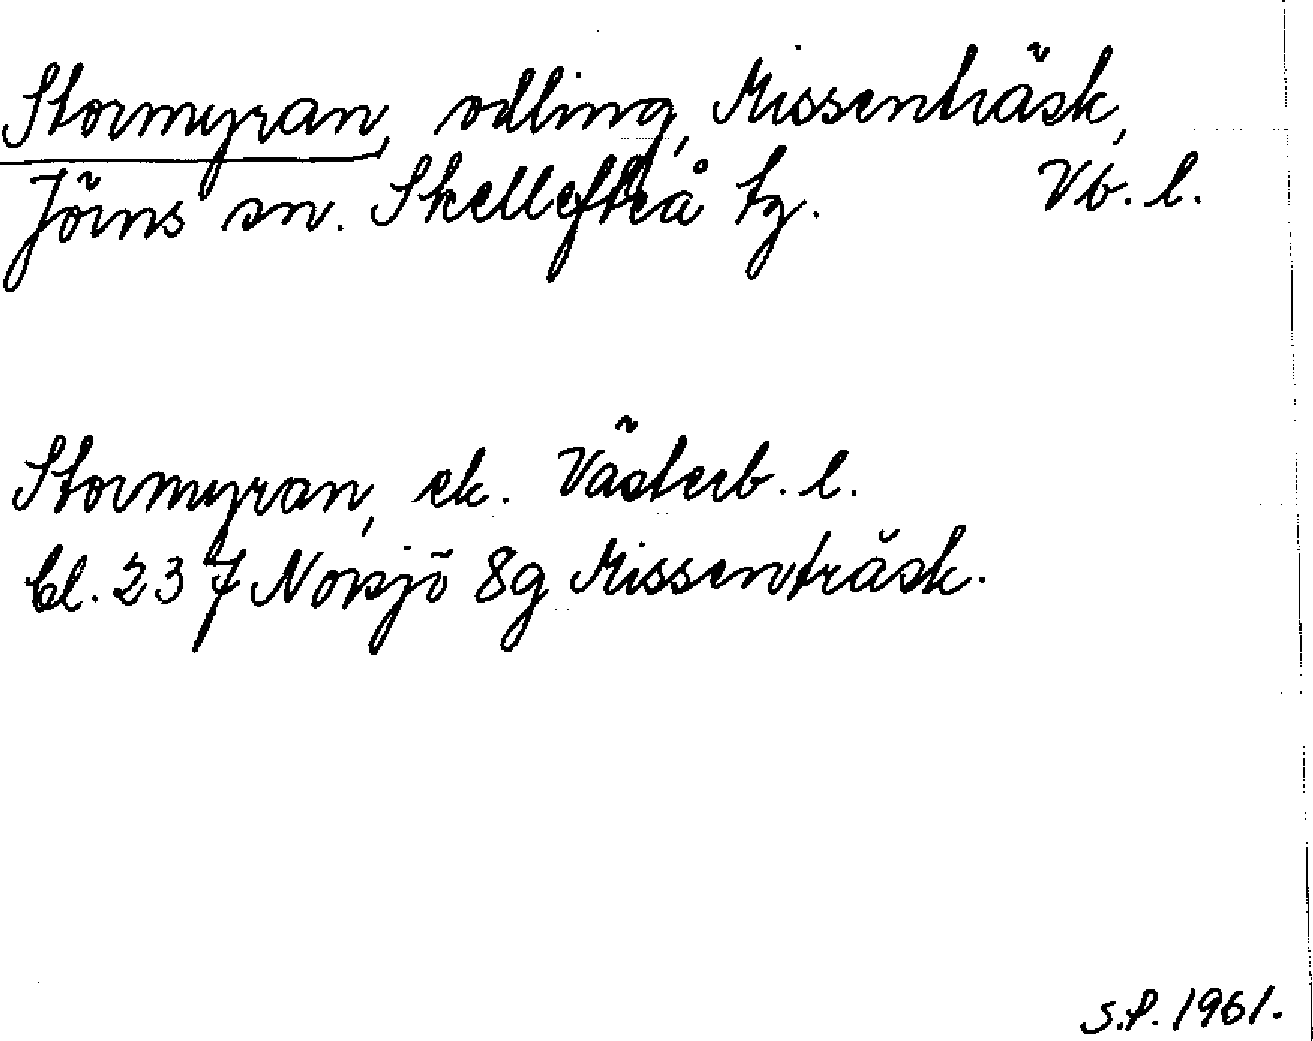 Stormyran, odling, Missenträsk,
Jörns sn. Skellefteå tg. Vb. l.
Stormyran, ek. Västerb. l.
bl. 237 Norsjö 8g Missenträsk.
S.P. 1961.